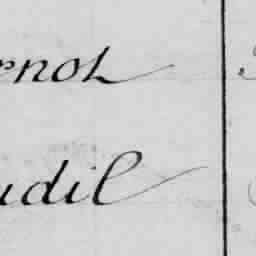 rnot
udil